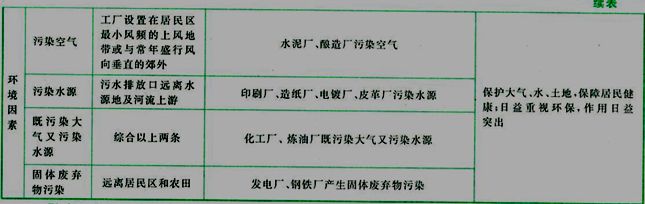 续表
环境因素
污染空气
工厂设置在居民区
最小风频的上风地
带或与常年盛行风
向垂直的郊外
水泥厂、酿造厂污染空气
保护大气、水、土地，保障居民健
康；日益重视环保，作用日益
突出
污染水源
污水排放口远离水
源地及河流上游
印刷厂、造纸厂、电镀厂、皮革厂污染水源
既污染大
气又污染
水源
综合以上两条
化工厂、炼油厂既污染大气又污染水源
固体废弃
物污染
远离居民区和农田
发电厂、钢铁厂产生固体废弃物污染